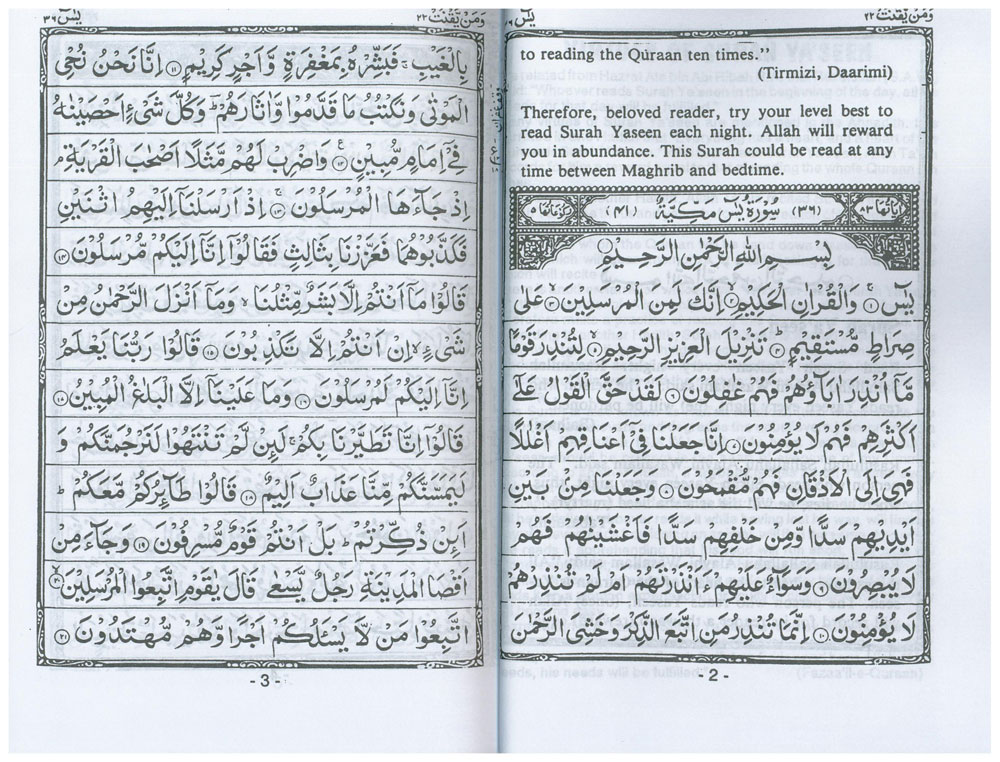 وَمَنْ يَّقْنُتْ ٢٢
to reading the Qúraan ten times.’’
(Tirmizi, Daarimi)
Therefore, beloved reader, try your level best to
read Surah Yaseen each night. Allah will reward
you in abundance. This Surah could be read at any
time between Maghrib and bedtime.
اٰيَاتُهَا ٨٣ (٣٦) سُوْرَةُ يٰسٓ مَكِّيَّةٌ (٤١) رُكُوْعَاتُهَا ٥
بِسْمِ اللهِ الرَّحْمٰنِ الرَّحِيْمِ
يٰسٓ ۝١ وَالْقُرْاٰنِ الْحَكِيْمِ ۝٢ اِنَّكَ لَمِنَ الْمُرْسَلِيْنَ ۝٣ عَلٰى
صِرَاطٍ مُّسْتَقِيْمٍ ۝٤ تَنْزِيْلَ الْعَزِيْزِ الرَّحِيْمِ ۝٥ لِتُنْذِرَ قَوْمًا
مَّاۤ اُنْذِرَ اٰبَآؤُهُمْ فَهُمْ غٰفِلُوْنَ ۝٦ لَقَدْ حَقَّ الْقَوْلُ عَلٰٓى
اَكْثَرِهِمْ فَهُمْ لَا يُؤْمِنُوْنَ ۝٧ اِنَّا جَعَلْنَا فِيْۤ اَعْنَاقِهِمْ اَغْلٰلًا
فَهِيَ اِلَى الْاَذْقَانِ فَهُمْ مُّقْمَحُوْنَ ۝٨ وَجَعَلْنَا مِنْۢ بَيْنِ
اَيْدِيْهِمْ سَدًّا وَّمِنْ خَلْفِهِمْ سَدًّا فَاَغْشَيْنٰهُمْ فَهُمْ
لَا يُبْصِرُوْنَ ۝٩ وَسَوَآءٌ عَلَيْهِمْ ءَاَنْذَرْتَهُمْ اَمْ لَمْ تُنْذِرْهُمْ
لَا يُؤْمِنُوْنَ ۝١٠ اِنَّمَا تُنْذِرُ مَنِ اتَّبَعَ الذِّكْرَ وَخَشِيَ الرَّحْمٰنَ
- 2 -
وَمَنْ يَّقْنُتْ ٢٢ يٰسٓ ٣٦
بِالْغَيْبِ ۚ فَبَشِّرْهُ بِمَغْفِرَةٍ وَّاَجْرٍ كَرِيْمٍ ۝١١ اِنَّا نَحْنُ نُحْيِ
الْمَوْتٰى وَنَكْتُبُ مَا قَدَّمُوْا وَاٰثَارَهُمْ ؕ وَكُلَّ شَيْءٍ اَحْصَيْنٰهُ
فِيْۤ اِمَامٍ مُّبِيْنٍ ۝١٢ وَاضْرِبْ لَهُمْ مَّثَلًا اَصْحٰبَ الْقَرْيَةِ ۘ
اِذْ جَآءَهَا الْمُرْسَلُوْنَ ۝١٣ اِذْ اَرْسَلْنَاۤ اِلَيْهِمُ اثْنَيْنِ
فَكَذَّبُوْهُمَا فَعَزَّزْنَا بِثَالِثٍ فَقَالُوْۤا اِنَّاۤ اِلَيْكُمْ مُّرْسَلُوْنَ ۝١٤
قَالُوْا مَاۤ اَنْتُمْ اِلَّا بَشَرٌ مِّثْلُنَا ۙ وَمَاۤ اَنْزَلَ الرَّحْمٰنُ مِنْ
شَيْءٍ ۙ اِنْ اَنْتُمْ اِلَّا تَكْذِبُوْنَ ۝١٥ قَالُوْا رَبُّنَا يَعْلَمُ
اِنَّاۤ اِلَيْكُمْ لَمُرْسَلُوْنَ ۝١٦ وَمَا عَلَيْنَاۤ اِلَّا الْبَلٰغُ الْمُبِيْنُ ۝١٧
قَالُوْۤا اِنَّا تَطَيَّرْنَا بِكُمْ ۚ لَئِنْ لَّمْ تَنْتَهُوْا لَنَرْجُمَنَّكُمْ وَ
لَيَمَسَّنَّكُمْ مِّنَّا عَذَابٌ اَلِيْمٌ ۝١٨ قَالُوْا طَآئِرُكُمْ مَّعَكُمْ ؕ
اَئِنْ ذُكِّرْتُمْ ؕ بَلْ اَنْتُمْ قَوْمٌ مُّسْرِفُوْنَ ۝١٩ وَجَآءَ مِنْ
اَقْصَا الْمَدِيْنَةِ رَجُلٌ يَّسْعٰى قَالَ يٰقَوْمِ اتَّبِعُوا الْمُرْسَلِيْنَ ۝٢٠
اتَّبِعُوْا مَنْ لَّا يَسْـَٔلُكُمْ اَجْرًا وَّهُمْ مُّهْتَدُوْنَ ۝٢١
- 3 -